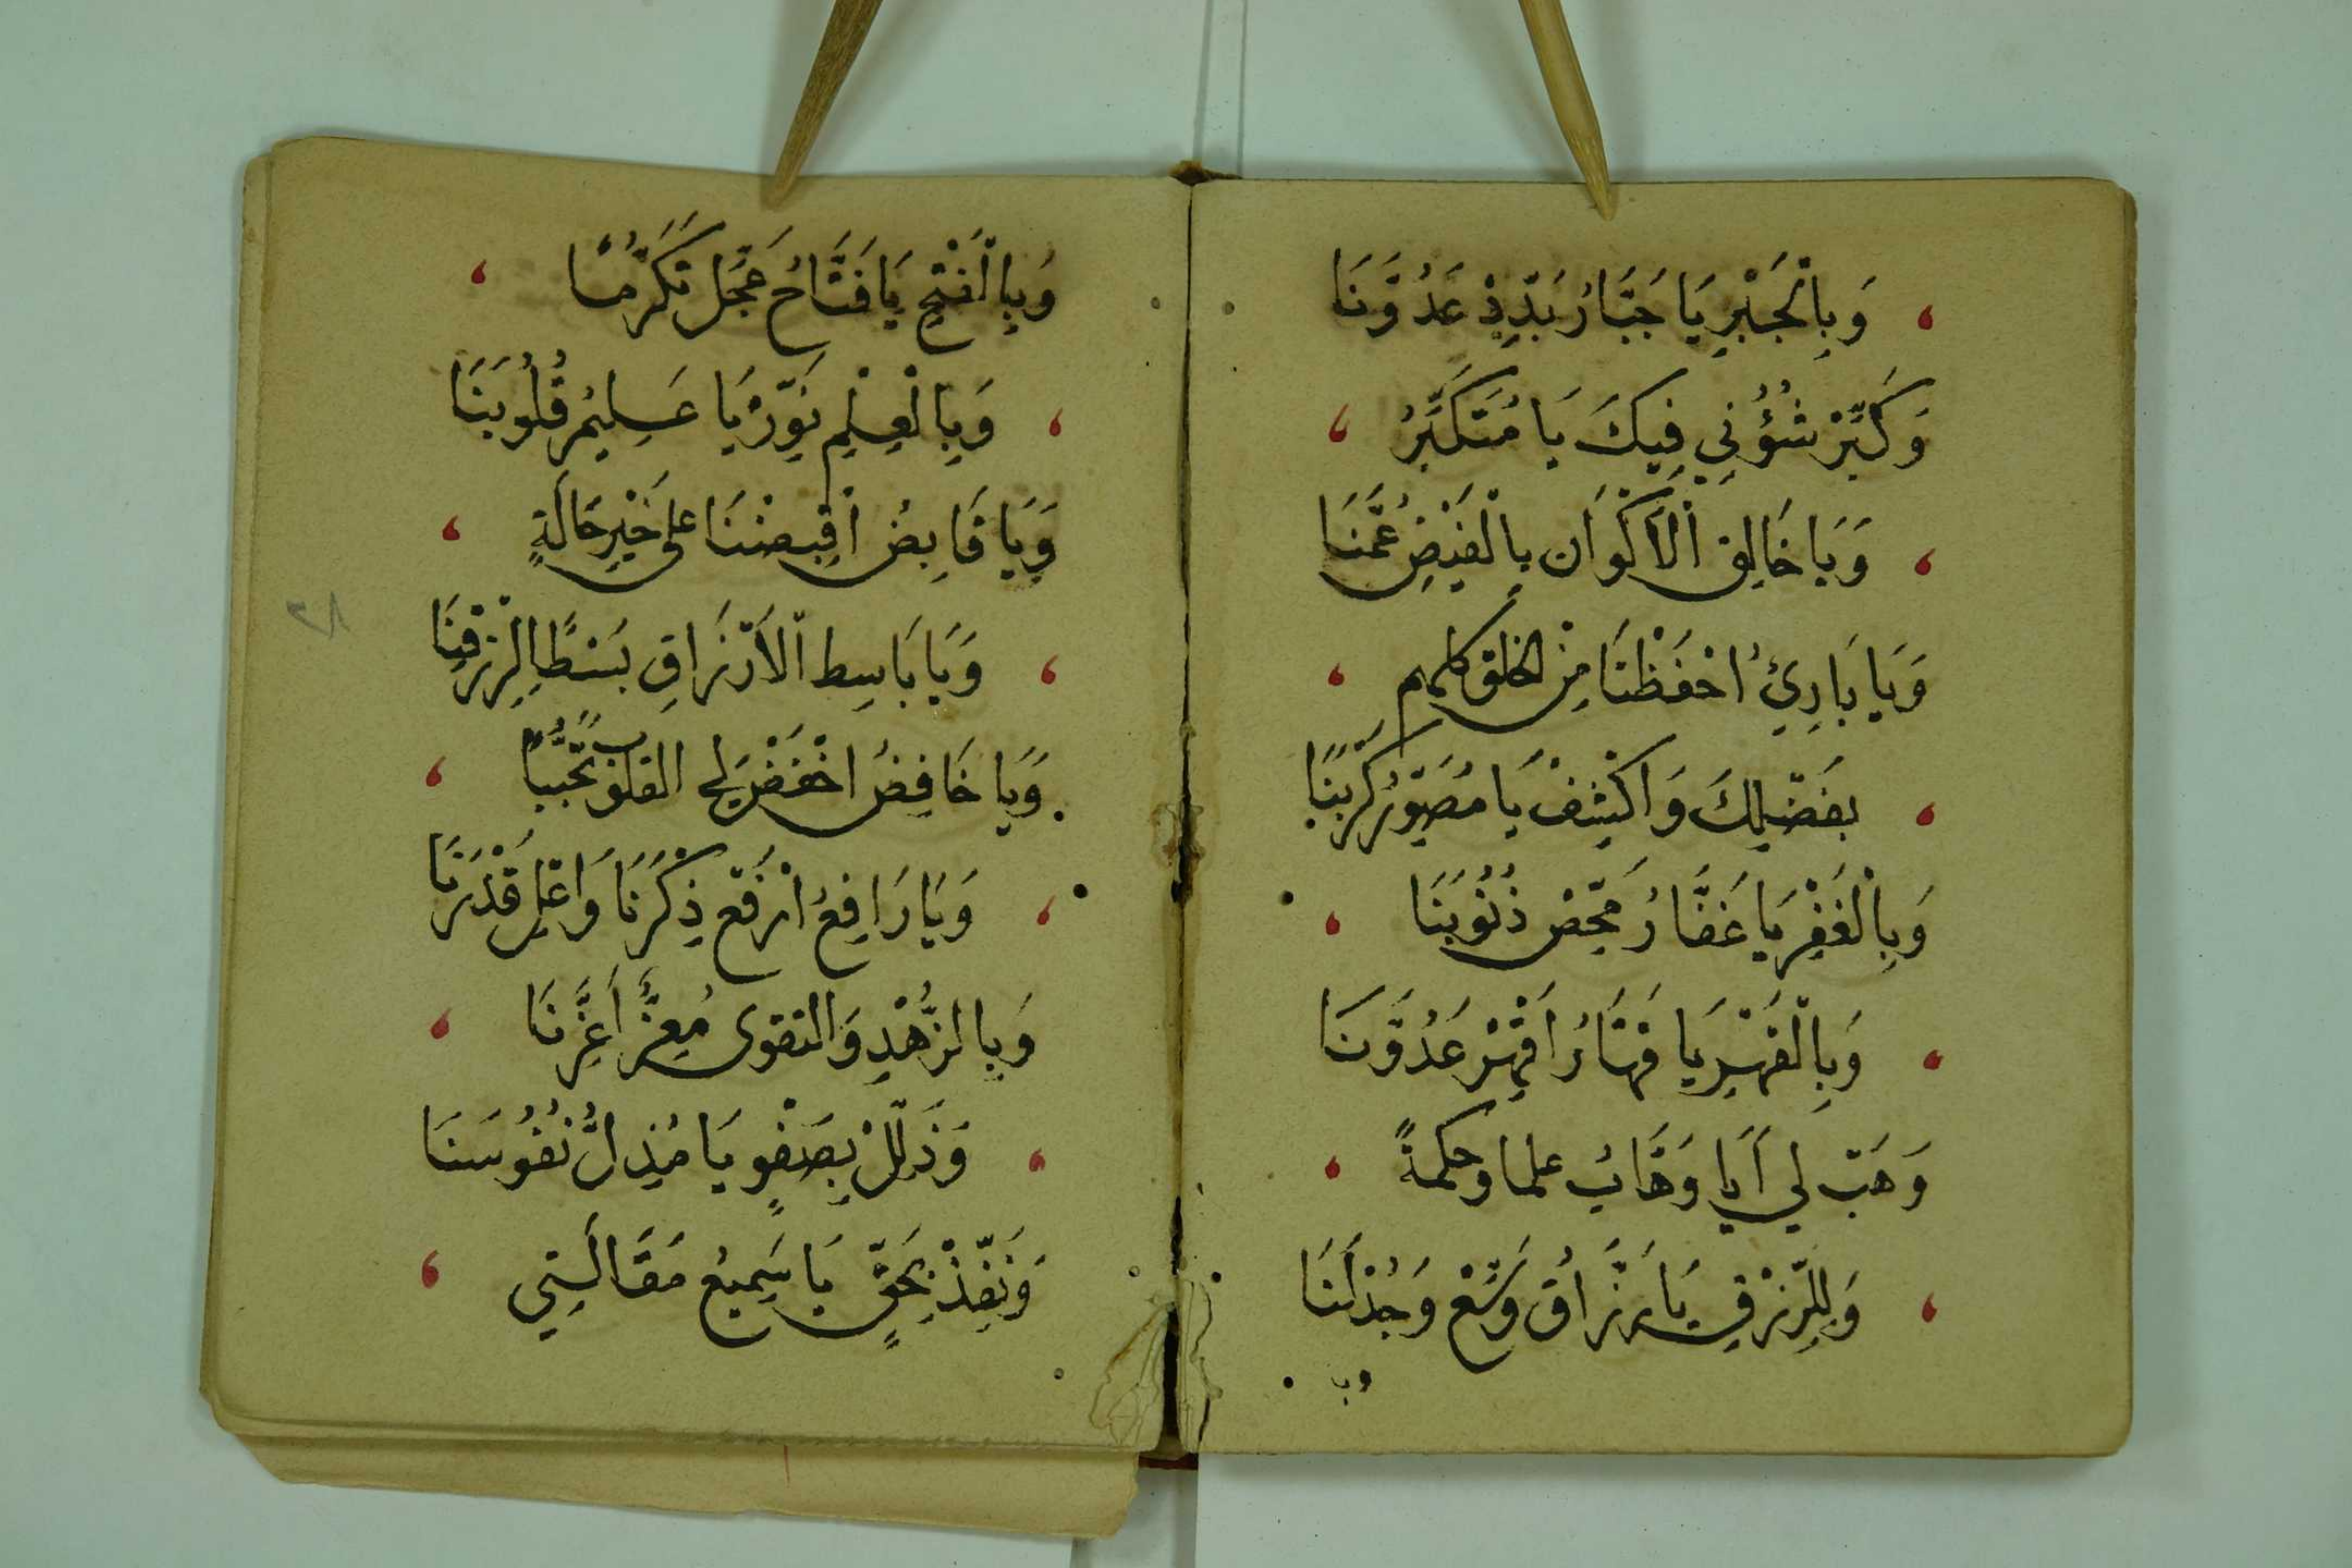 وَبِالْجَبْرِ يَا جَبَّارُ بَدِّدْ عَدُوَّنَا
وَكَبِّرْ شُؤُنِي فِيكَ يَا مُتَكَبِّرُ
وَيَا خَالِقَ الْأَكْوَانِ بِالْفَيْضِ عُمَّنَا
وَيَا بَارِئُ احْفَظْنَا مِنَ الخلق كلهم
بِفَضْلِكَ وَاكْشِفْ يَا مُصَوِّرُ كَرْبَنَا
وَبِالْغَفْرِ يَا غَفَّارُ مَحِّضْ ذُنُوبَنَا
وَبِالْقَهْرِ يَا قَهَّارُ اقْهَرْ عَدُوَّنَا
وَهَبْ لِي أَيَا وَهَّابُ علما وحكمةً
وَلِلرِّزْقِ يَا رَزَّاقُ وَسِّعْ وَجُدْ لَنَا
وبا
وَبِالْفَتْحِ يَا فَتَّاحُ عَجِّلْ تَكَرُّمًا
وَبِالْعِلْمِ نَوِّرْ يَا عَلِيمُ قُلُوبَنَا
وَيَا قَابِضُ اقْبِضْنَا عَلَى خَيْرِ حَالَةٍ
وَيَا بَاسِطَ الْأَرْزَاقِ بَسْطًا لِرِزْقِنَا
وَيَا خَافِضُ اخْفِضْ لِي القلوب تَحَبُّبًا
وَيَا رَافِعُ ارْفَعْ ذِكْرَنَا وَاعْلِ قَدْرَنَا
وَبِالزُّهْدِ وَالتقوى مُعِزُّ أَعِزَّنَا
وَذَلِّلْ بِصَفْوٍ يَا مُذِلُّ نُفُوسَنَا
وَنَفِّذْ بِحَقٍّ يَا سَمِيعُ مَقَالَتِي
٢٨